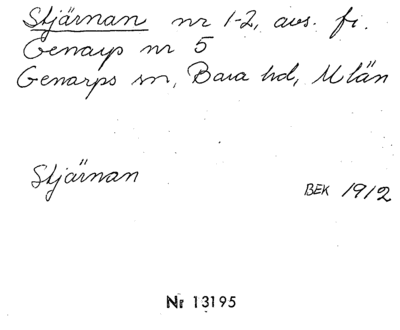 Stjärnan nr 1-2, avs. fr.
Genarp nr 5
Genarps sn, Bara hd, M län
Stjärnan
BEK 1912
Nr 13195